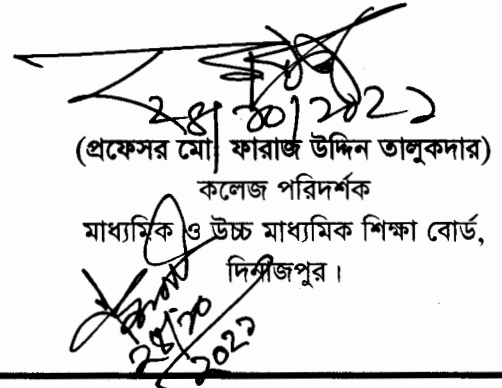 ২৪/১০/২০২১
(প্রফেসর মো ফারাজ উদ্দিন তালুকদার)
কলেজ পরিদর্শক
মাধ্যমিক ও উচ্চ মাধ্যমিক শিক্ষা বোর্ড,
দিনাজপুর।
২৪/১০
২০২১